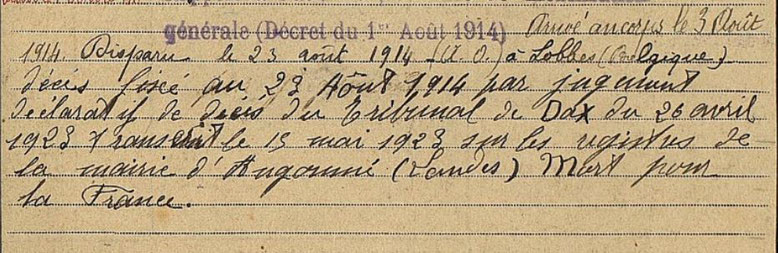 générale (Décret du 1er Août 1914) Arrivé au corps le 3 Août
1914. Disparu le 23 août 1914 (A. O.) à Lobbes (Belgique)
décès fixé au 23 Août 1914 par jugement
déclaratif de décès du Tribunal de Dax du 26 avril
1923 transcrit le 15 mai 1923 sur les registres de
la mairie d'Angoumé (Landes) Mort pour
la France.